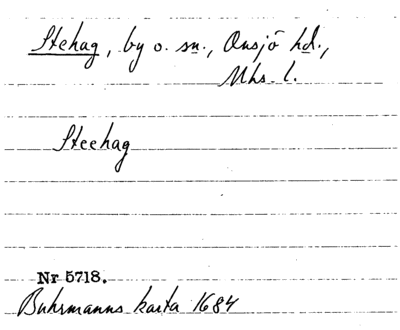 Stehag, by o. sn., Onsjö hd.,
Mhs. l.
Steehag
Nr 5718.
Buhrmanns karta 1684